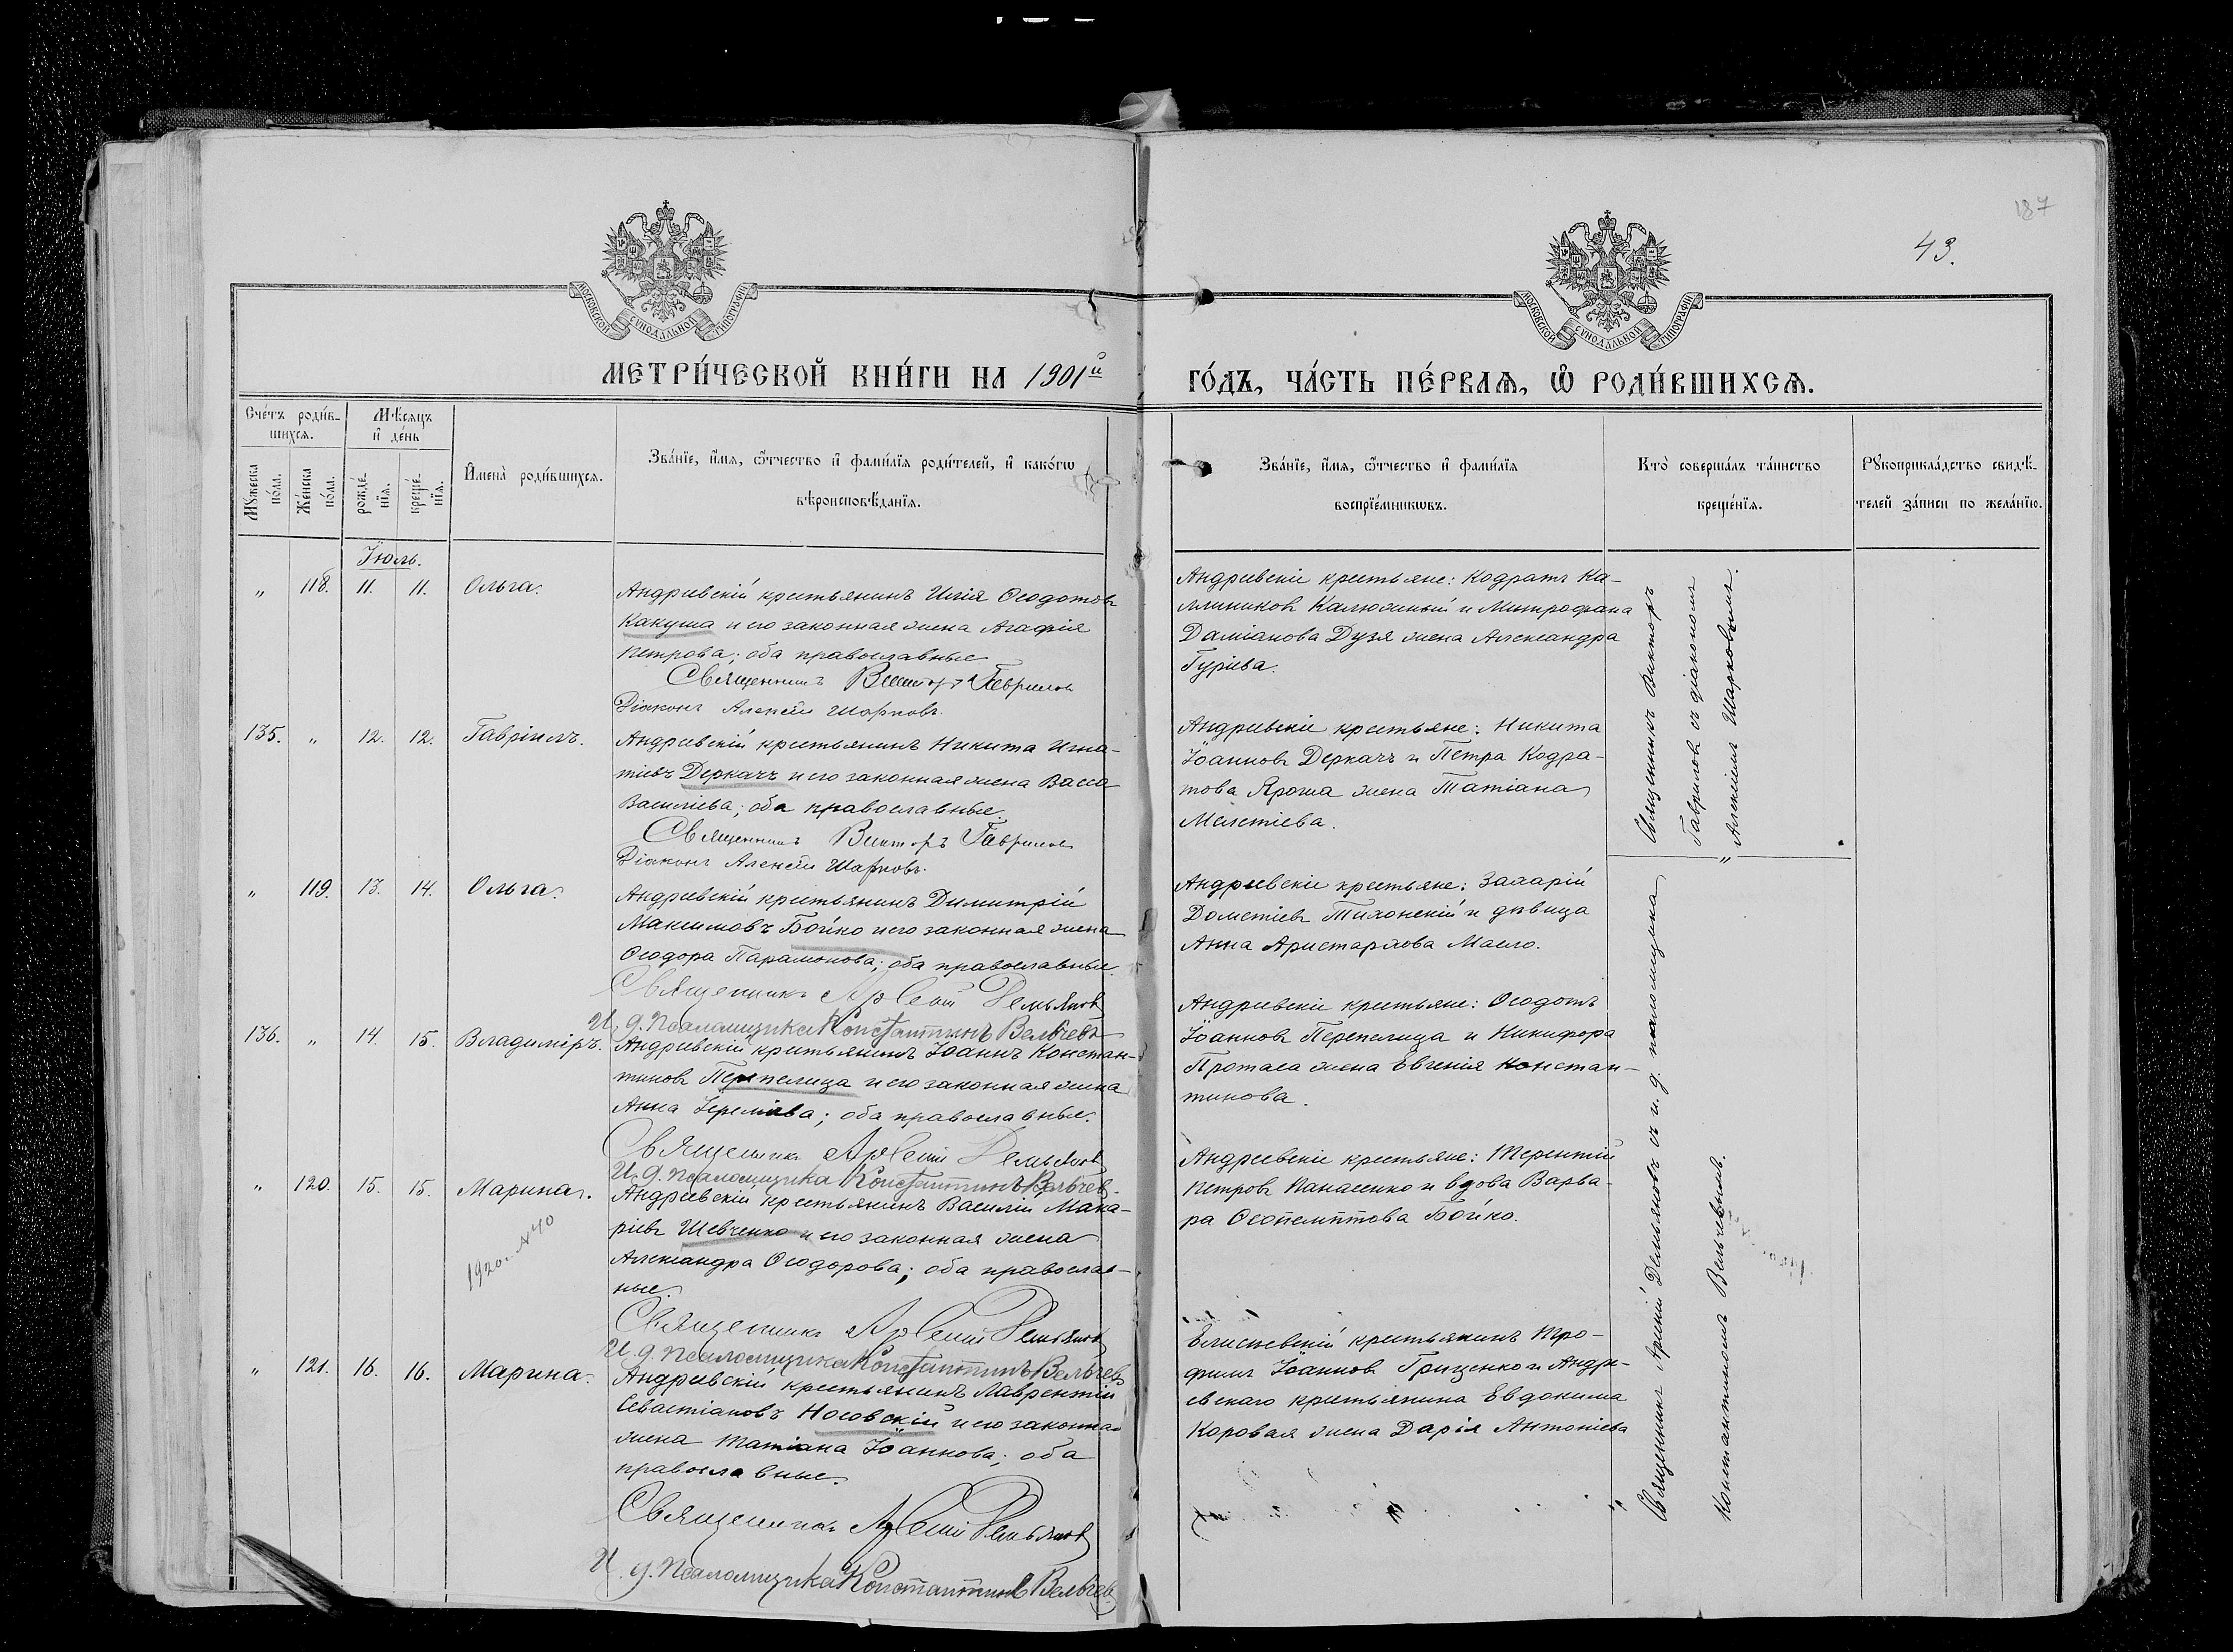 187
43.
МОСКОВСКОЙ СѴНОДАЛЬНОЙ ТИПОГРАФІИ
МОСКОВСКОЙ СѴНОДАЛЬНОЙ ТИПОГРАФІИ
МЕТРИ́ЧЕСКОЙ КНИ́ГИ НА 1901й ГО́ДЪ, ЧА́СТЬ ПЕ́РВАѦ, Ѡ РОДИ́ВШИХСѦ.
Сче́тъ роди́в-
шихсѧ.
Мѣсѧцъ
и де́нь
Мꙋжеска по́ла.
Же́нска по́ла.
рожде́-
нїѧ.
креще́-
нїѧ.
Имена̀ роди́вшихсѧ.
Зва́нїе, и́мѧ, ѻ҆́тчество и фами́лїѧ роди́телей, и како́гѡ
вѣроисповѣ́данїѧ.
Зва́нїе, и́мѧ, ѻ҆́тчество и фами́лїѧ
воспрїе́мникѡвъ.
Кто̀ соверша́лъ та́инство
креще́нїѧ.
Рꙋкоприкла́дство свидѣ́-
телей за́писи по жела́нїю.
Іюль.
" 118. 11. 11. Ольга.
Андреевскій крестьянинъ Илія Ѳеодотовъ
Какуша и его законная жена Агафія
Петрова; оба православные
Священникъ Викторъ Гавриловъ
Діаконъ Алексій Шарковъ.
Андреевскіе крестьяне: Кодратъ Ка-
линиковъ Калюжный и Митрофана
Даміанова Дузя жена Александра
Гуріева.
135. " 12. 12. Гавріилъ.
Андреевскій крестьянинъ Никита Игна-
тіевъ Деркачъ и его законная жена Васса
Василіева; оба православные.
Священникъ Викторъ Гавриловъ
Діаконъ Алексій Шарковъ.
Андреевскіе крестьяне: Никита
Іоанновъ Деркачъ и Петра Кодра-
това Яроша жена Татіана
Мелетіева.
Священникъ Викторъ
Гавриловъ съ діакономъ
Алексіемъ Шарковымъ.
" 119. 13. 14. Ольга.
Андреевскій крестьянинъ Димитрій
Максимовъ Бойко и его законная жена
Ѳеодора Парамонова; оба православные.
Священникъ Арсеній Демьяновъ
И. д. псаломщика Константинъ Вельчевъ
Андреевскіе крестьяне: Захарій
Дометіевъ Тихонскій и дѣвица
Анна Аристархова Масло.
136. " 14. 15. Владиміръ.
Андреевскій крестьянинъ Іоаннъ Констан-
тиновъ Перепелица и его законная жена
Анна Іереміева; оба православные.
Священникъ Арсеній Демьяновъ
И. д. псаломщика Константинъ Вельчевъ.
Андреевскіе крестьяне: Ѳеодотъ
Іоанновъ Перепелица и Никифора
Протаса жена Евгенія Констан-
тинова.
" 120. 15. 15. Марина.
1920. №40
Андреевскій крестьянинъ Василій Мака-
ріевъ Шевченко и его законная жена
Александра Ѳеодорова; оба православ-
ные.
Священникъ Арсеній Демьяновъ
И. д. псаломщика Константинъ Вельчевъ
Андреевскіе крестьяне: Терентій
Петровъ Панасенко и вдова Варва-
ра Ѳеопемптова Бойко.
" 121. 16. 16. Марина.
Андреевскій крестьянинъ Лаврентій
Севастіановъ Носовскій и его законная
жена Татіана Іоаннова; оба
православные.
Священникъ Арсеній Демьяновъ
И. д. псаломщика Константинъ Вельчевъ
Елисеевскій крестьянинъ Тро-
фимъ Іоанновъ Гриценко и Андре-
евскаго крестьянина Евдокима
Коровая жена Дарія Антоніева
Священникъ Арсеній Демьяновъ съ и. д. псаломщика
Константиномъ Вельчевымъ.